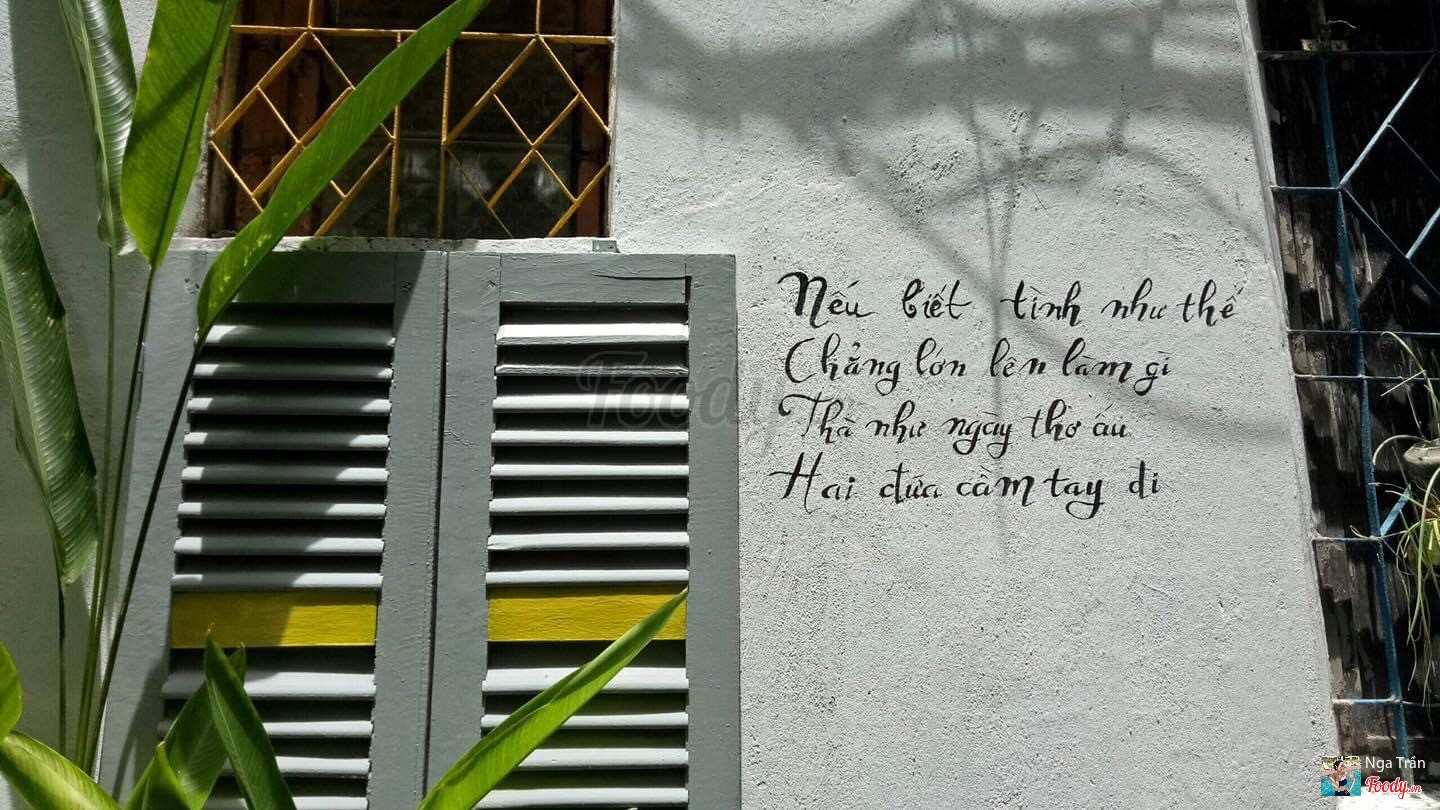 Nếu biết tình như thế
Chẳng lớn lên làm gì
Thà như ngày thơ ấu
Hai đứa cầm tay đi
Foody
Nga Trần
Foody.vn